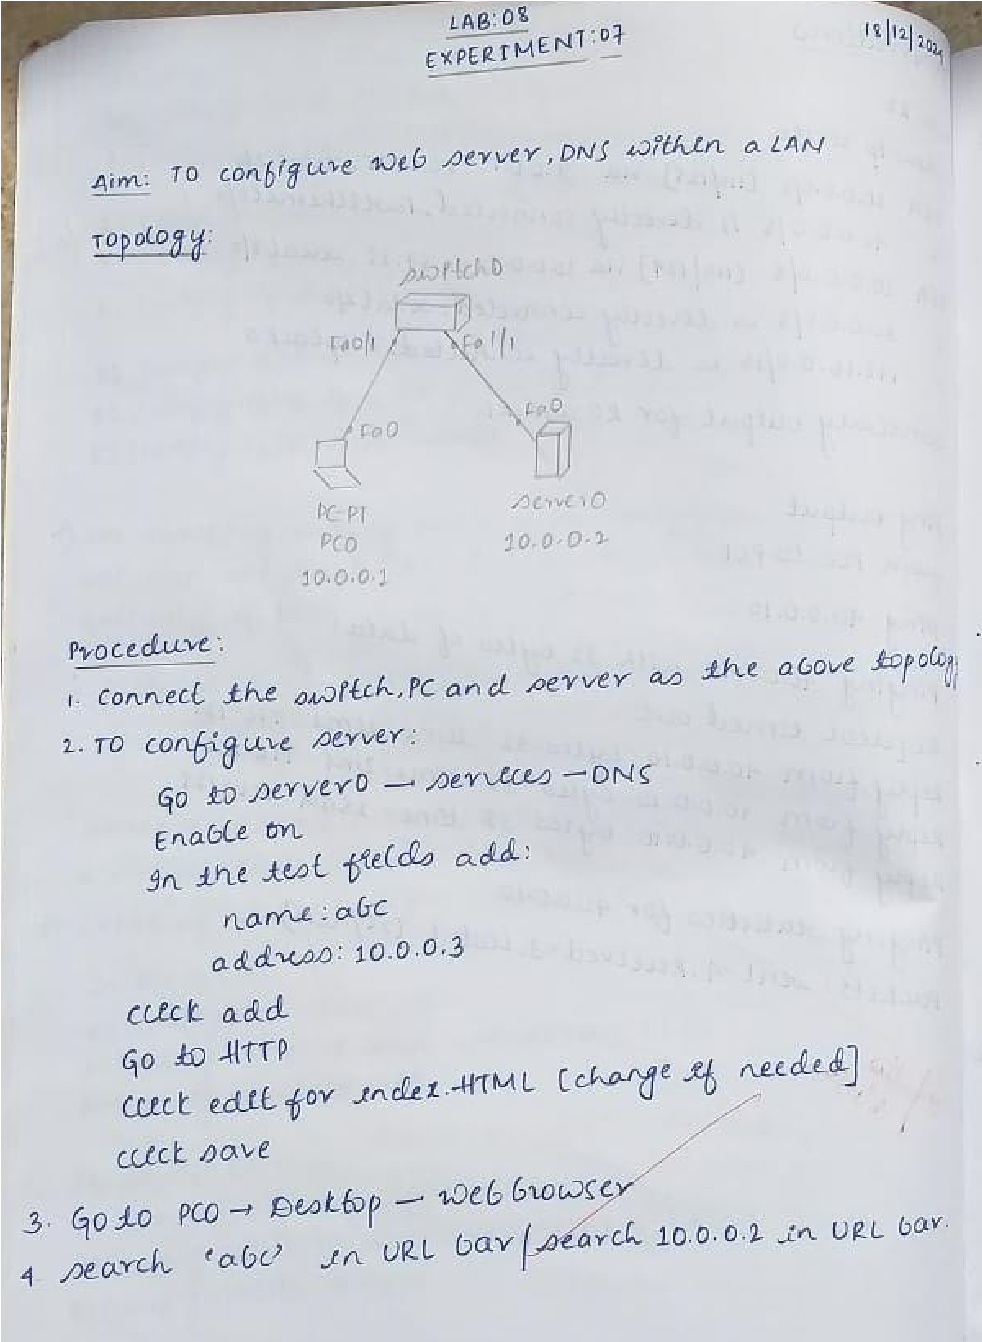 LAB:08
EXPERIMENT:07
18/12/2024
Aim: To configure web server, DNS within a LAN
Topology:
switch0
Fa0/1 Fa1/1
Fa0 Fa0
PC-PT
PC0
10.0.0.1
server0
10.0.0.2
Procedure:
1. connect the switch, PC and server as the above topology
2. To configure server:
Go to server0 — services — DNS
Enable on
In the test fields add:
name: abc
address: 10.0.0.3
click add
Go to HTTP
click edit for index.HTML [change if needed]
click save
3. Go to PC0 → Desktop — web browser
4 search 'abc' in URL bar / search 10.0.0.2 in URL bar.